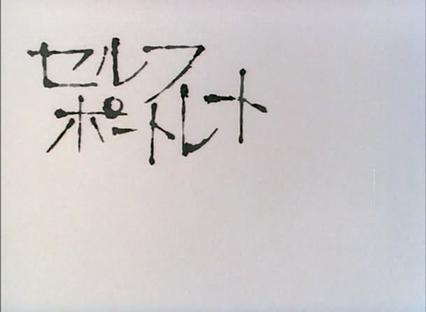 セルフ
ポートレート